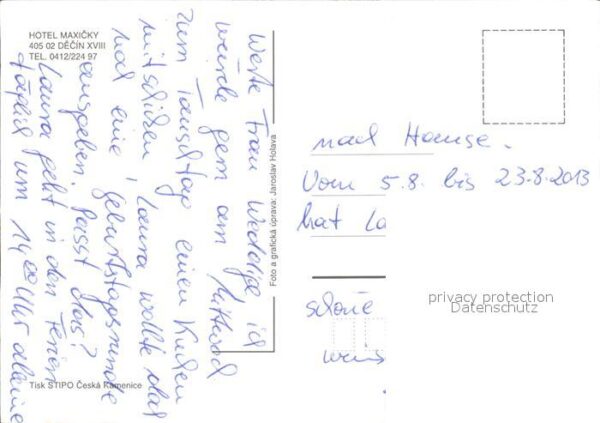 HOTEL MAXIČKY
405 02 DĚČÍN XVIII
TEL. 0412/224 97
Werte Frau Weddige ich
würde gern am Mittwoch
zum Tausdtag einen Kuchen
mitschicken, Laura wollte doch
noch eine Geburtstagsrunde
ausgeben. Passt das?
Laura geht in den Ferien
täglich um 14.00 Uhr alleine
nach Hause.
Vom 5.8. bis 23.8.2013
hat La
schöne
wüns
Foto a grafická úprava: Jaroslav Holava
Tisk STIPO Česká Kamenice
privacy protection
Datenschutz